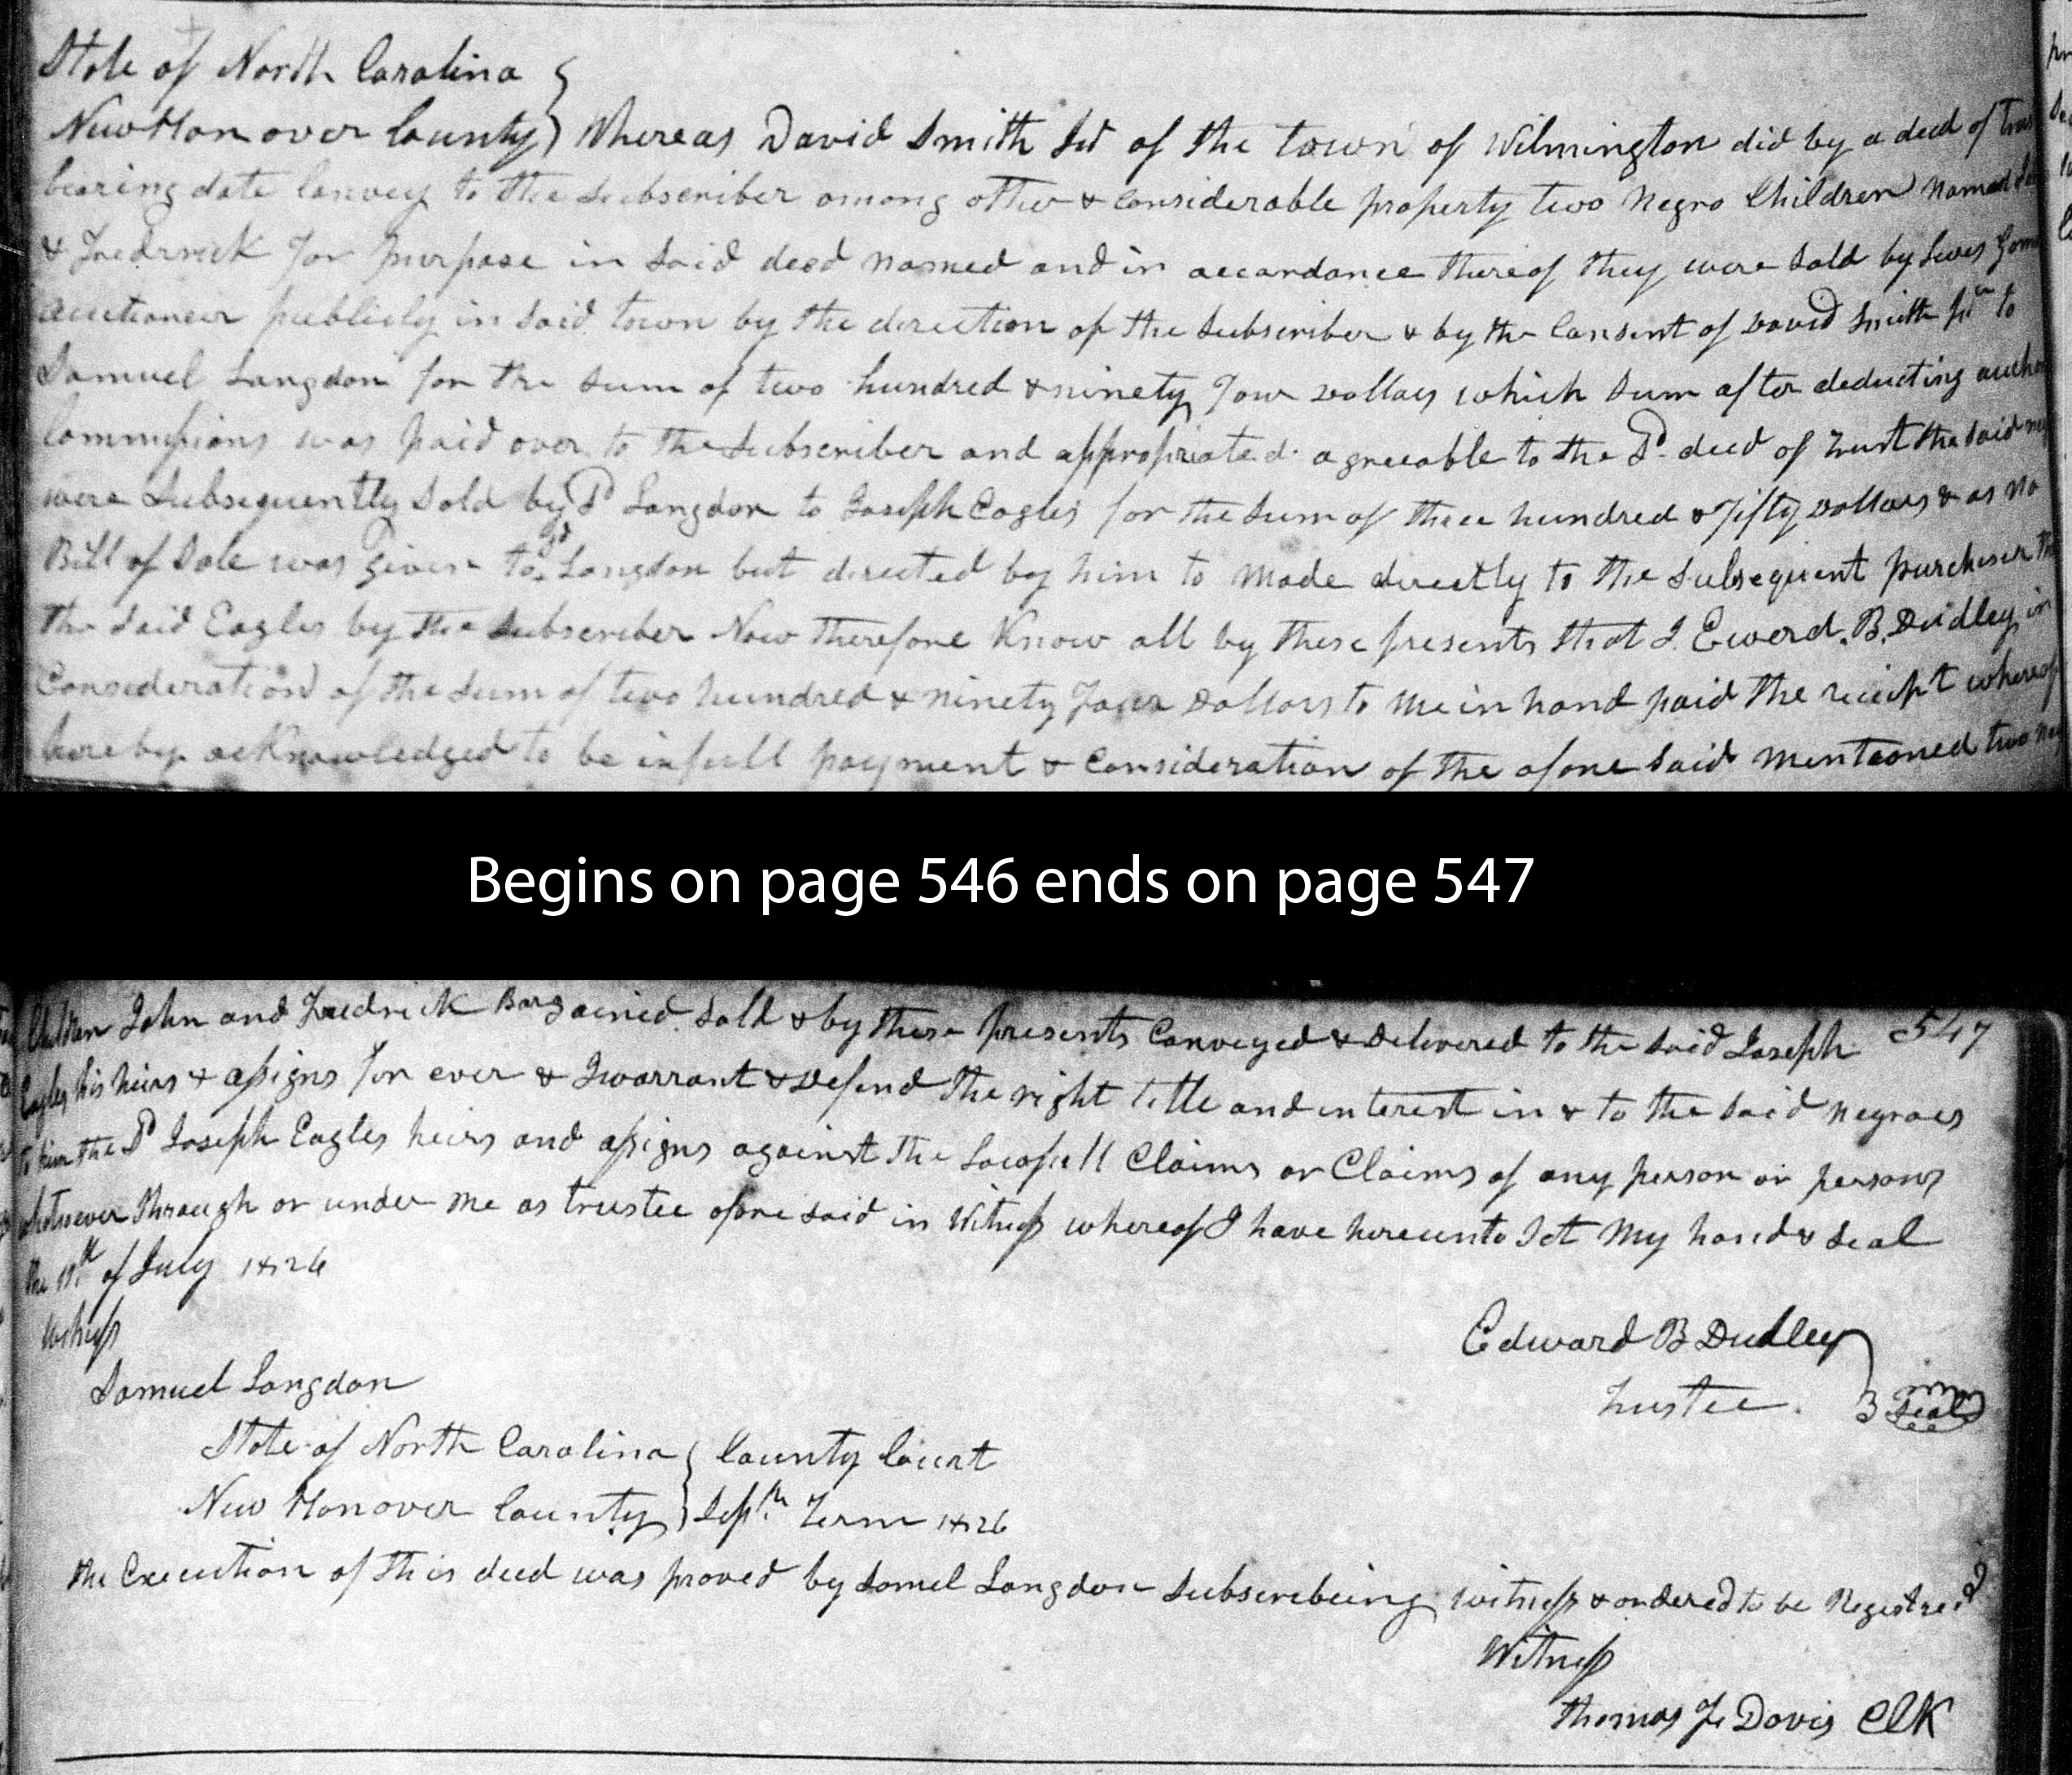 State of North Carolina
New Hanover County) Whereas David Smith Jur of the town of Wilmington did by a deed of
bearing date Convey to the Subscriber among other & Considerable property two Negro Children Named
& Fredrick for purpose in Said deed Named and in accordance thereof they were Sold by
auctioneer publicly in Said town by the direction of the Subscriber & by the Consent of David Smith Jur to
Samuel Langdon for the Sum of two hundred & ninety four Dollars which Sum after deducting
Commissions was paid over to the Subscriber and appropriated agreeable to the Sd deed of trust the Said
were Subsequently Sold by Sd Langdon to Joseph Eagles for the Sum of three hundred & fifty Dollars & as no
Bill of Sale was given to Sd Langdon but directed by him to Made directly to the Subsequent purchaser
the Said Eagles by the Subscriber Now therefore Know all by these presents that I Eward. B. Dudley in
Consideration of the Sum of two hundred & ninety four Dollars to Me in hand paid the receipt whereof
hereby acknowledged to be in full payment & Consideration of the afore Said Mentioned two
Begins on page 546 ends on page 547
Children John and Fredrick Bargained Sold & by these presents Conveyed & Delivered to the Said Joseph 547
Eagles his heirs & assigns for ever & I warrant & Defend the right title and interest in & to the Said negroes
to him the Sd Joseph Eagles heirs and assigns against the Lawfull Claims or Claims of any person or persons
whatsoever through or under me as trustee afore said in Witness whereof I have hereunto Set My hand & Seal
the of July 1826
Witness
Edward B Dudley
Samuel Langdon
trustee. Seal
State of North Carolina County Court
New Hanover County) Sepr Term 1826
the Execution of this deed was proved by Samel Langdon Subscribeing witness & ordered to be Registred
Witness
Thomas F Davis Clk